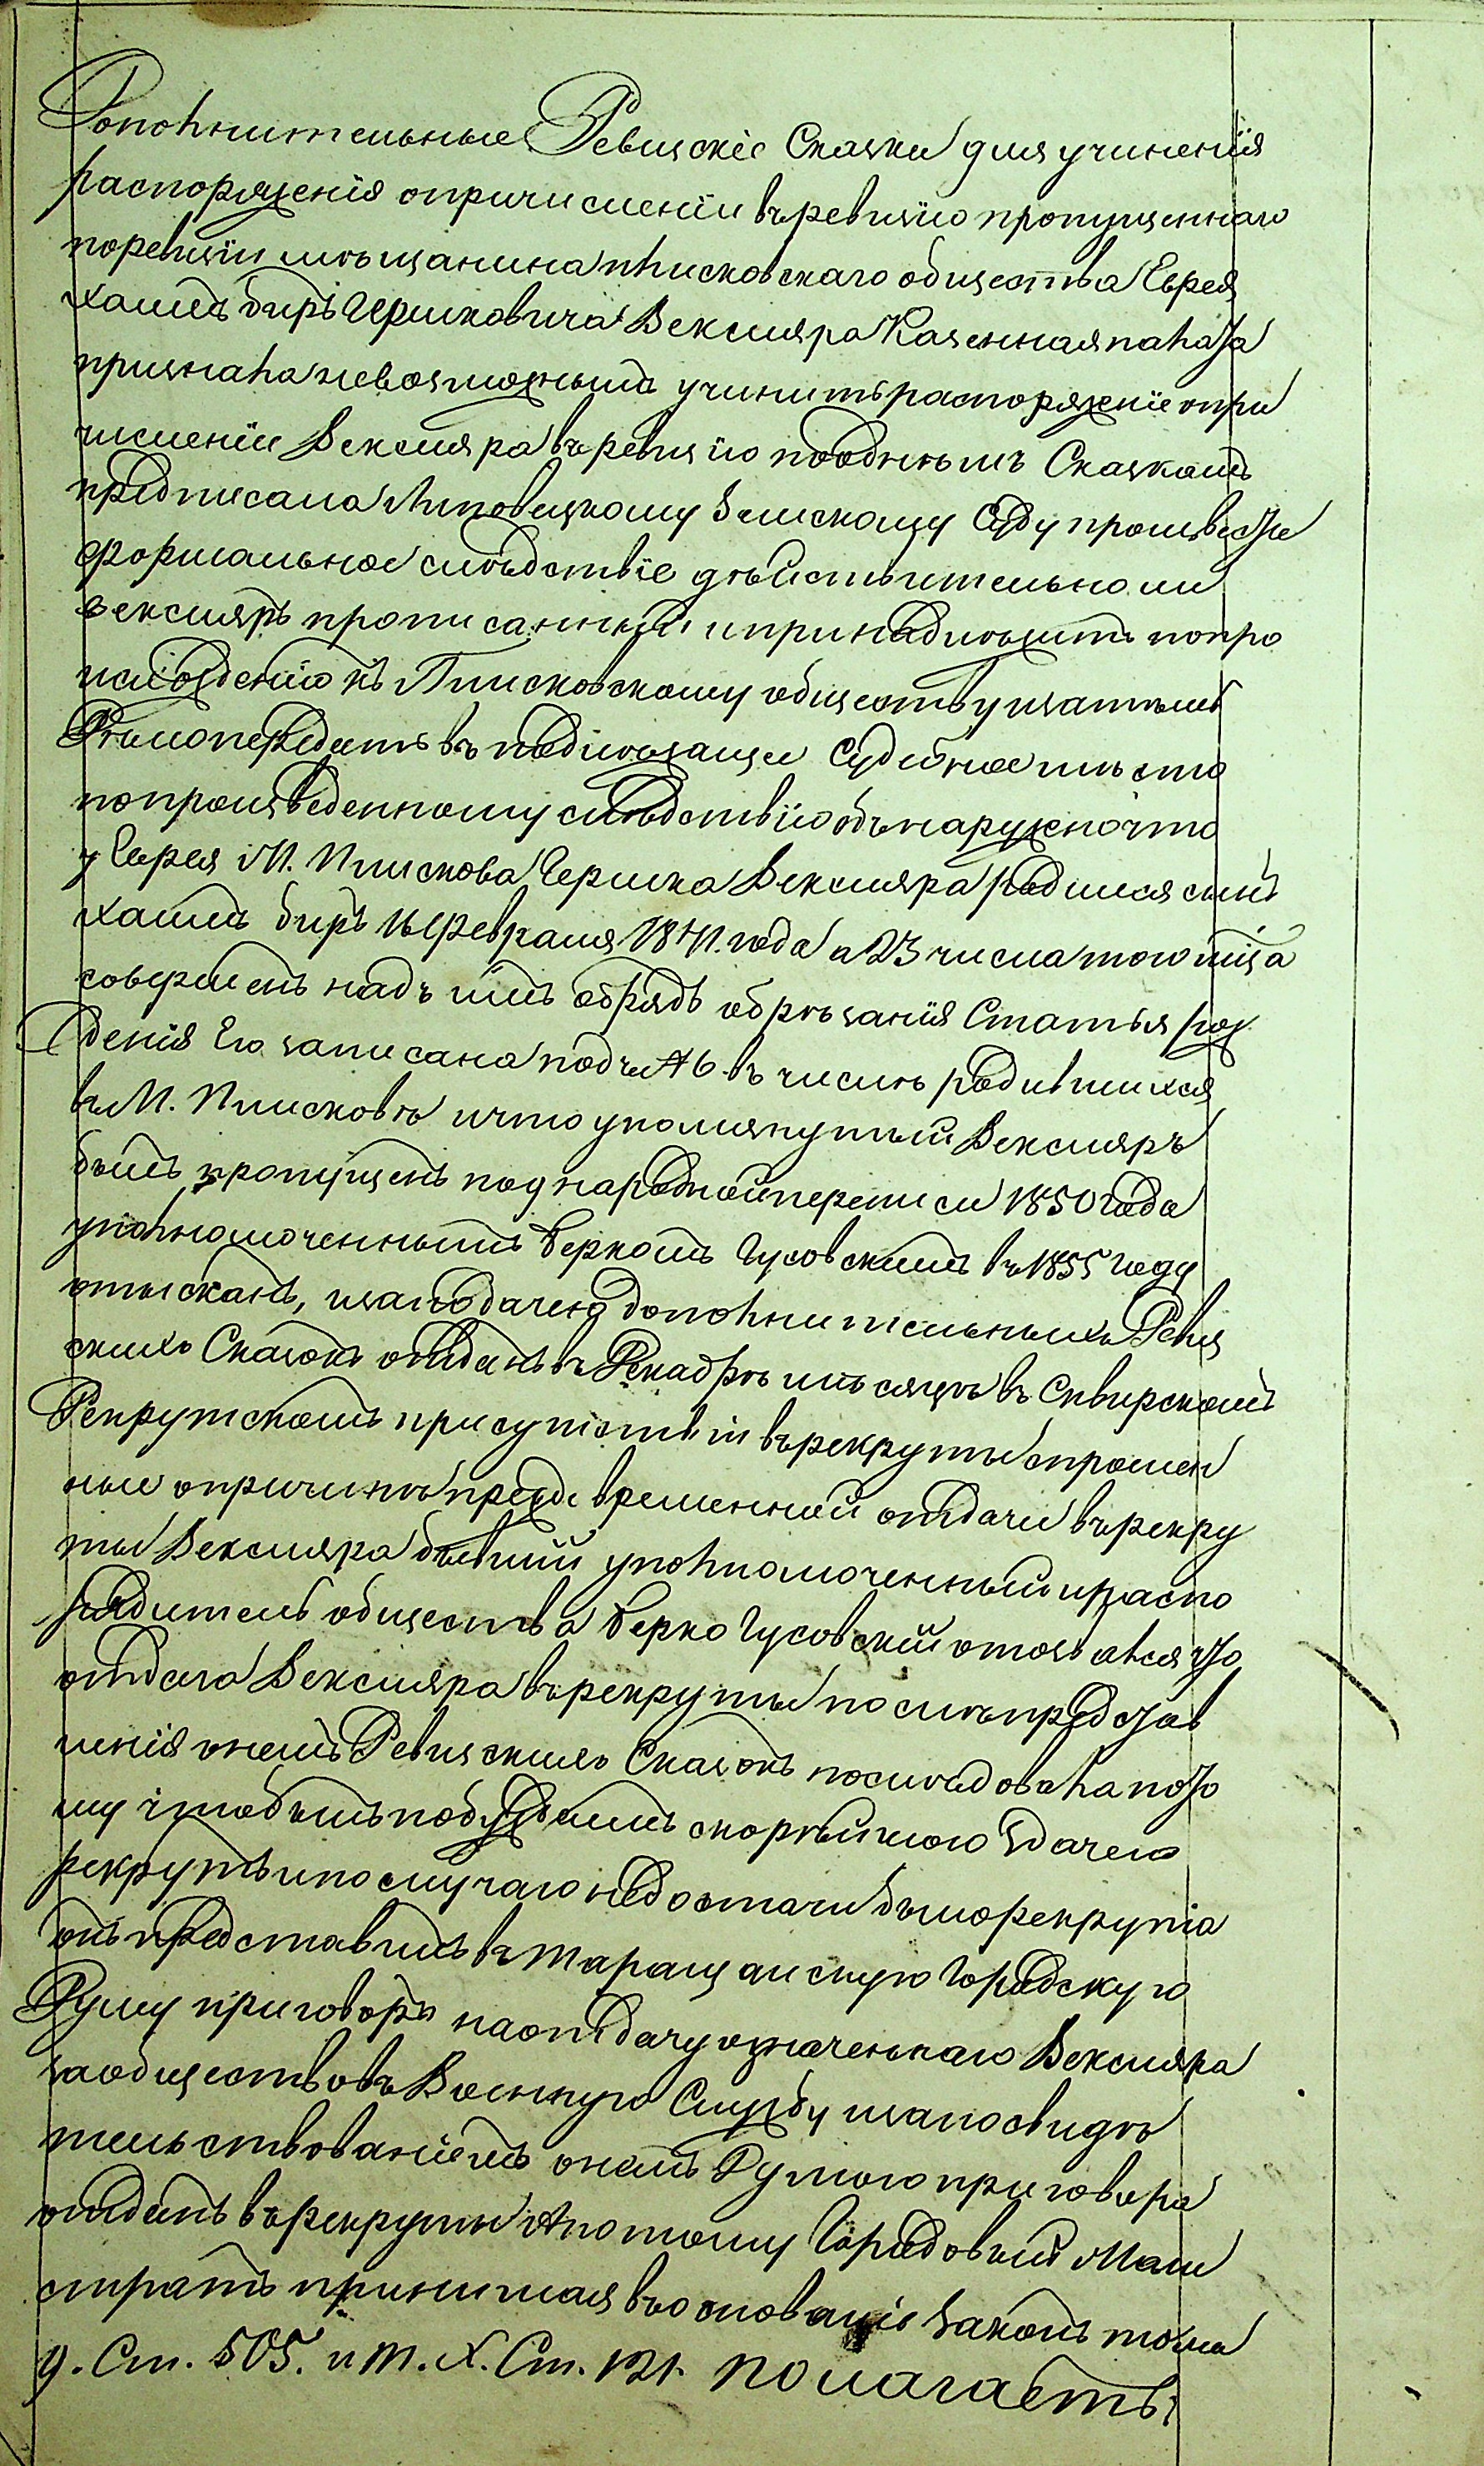 Дополнительные Ревизскіе Сказки для учиненія
распоряженія опричисленіи въревизію пропущеннаго
поревизіи мѣщанина Плисковскаго общества Еврея
Хаимъ биръ Гершковича Вексляра Казенная палата
признала невозможнымъ учинить распоряженіе опри
численіи Вексляра въревизію пооднѣмъ Сказкамъ
предписала Липовецкому Земскому Суду произвести
формальное слѣдствіе дѣйствительно ли
Векслярь прописанный ипринадлежитъ попро
изхожденію къ Плисковскому обществу изатѣмъ
Дѣло передать въ подлежащее Судебное мѣсто
попроизведенному слѣдствію обънаружено что
у Еврея М. Плискова Гершка Вексляра родился сынъ
Хаимъ биръ 16 февраля 1841. года а 23 числа того м-ца
совершенъ надъ нимъ обрядъ обрѣзанія Статья рож
денія Его записана подъ № 6 въ числѣ родившихся
въ М. Плисковѣ ичто упомянутый Вексляръ
былъ пропущенъ поднародной переписи 1850 года
уполномоченнымъ Беркомъ Гусовскимъ въ 1855 году
отысканъ, изаподачею дополнительныхъ Ревиз
скихъ Сказокъ отданъ въ Декабрѣ мѣсяцѣ въ Сквирскомъ
Рекрутскомъ присутствіи върекруты спрошен
ные опричинѣ преждевременной отдачи върекру
ты Вексляра бывшій уполномоченный ираспо
рядитель общества Берко Гусовскій отозвался что
отдача Вексляра върекруты послѣ представ
ленія онемъ Ревизскихъ Сказокъ послѣдовала пото
му чтобылъ побуждаемъ скорѣйшею здачею
рекрутъ ипослучаю недостачи было рекрута
онъ представилъ въ Таращанскую Городскую
Думу приговоръ наотдачу означеннаго Вексляра
заобществовъ Военную Службу изапосвидѣ
тельствованіемъ онымъ Думою приговора
отданъ върекруты Апотому Городовый Маги
стратъ принимая въоснованіе законъ тома
9. Ст. 505. и т. X. Ст. 121. полагаетъ: